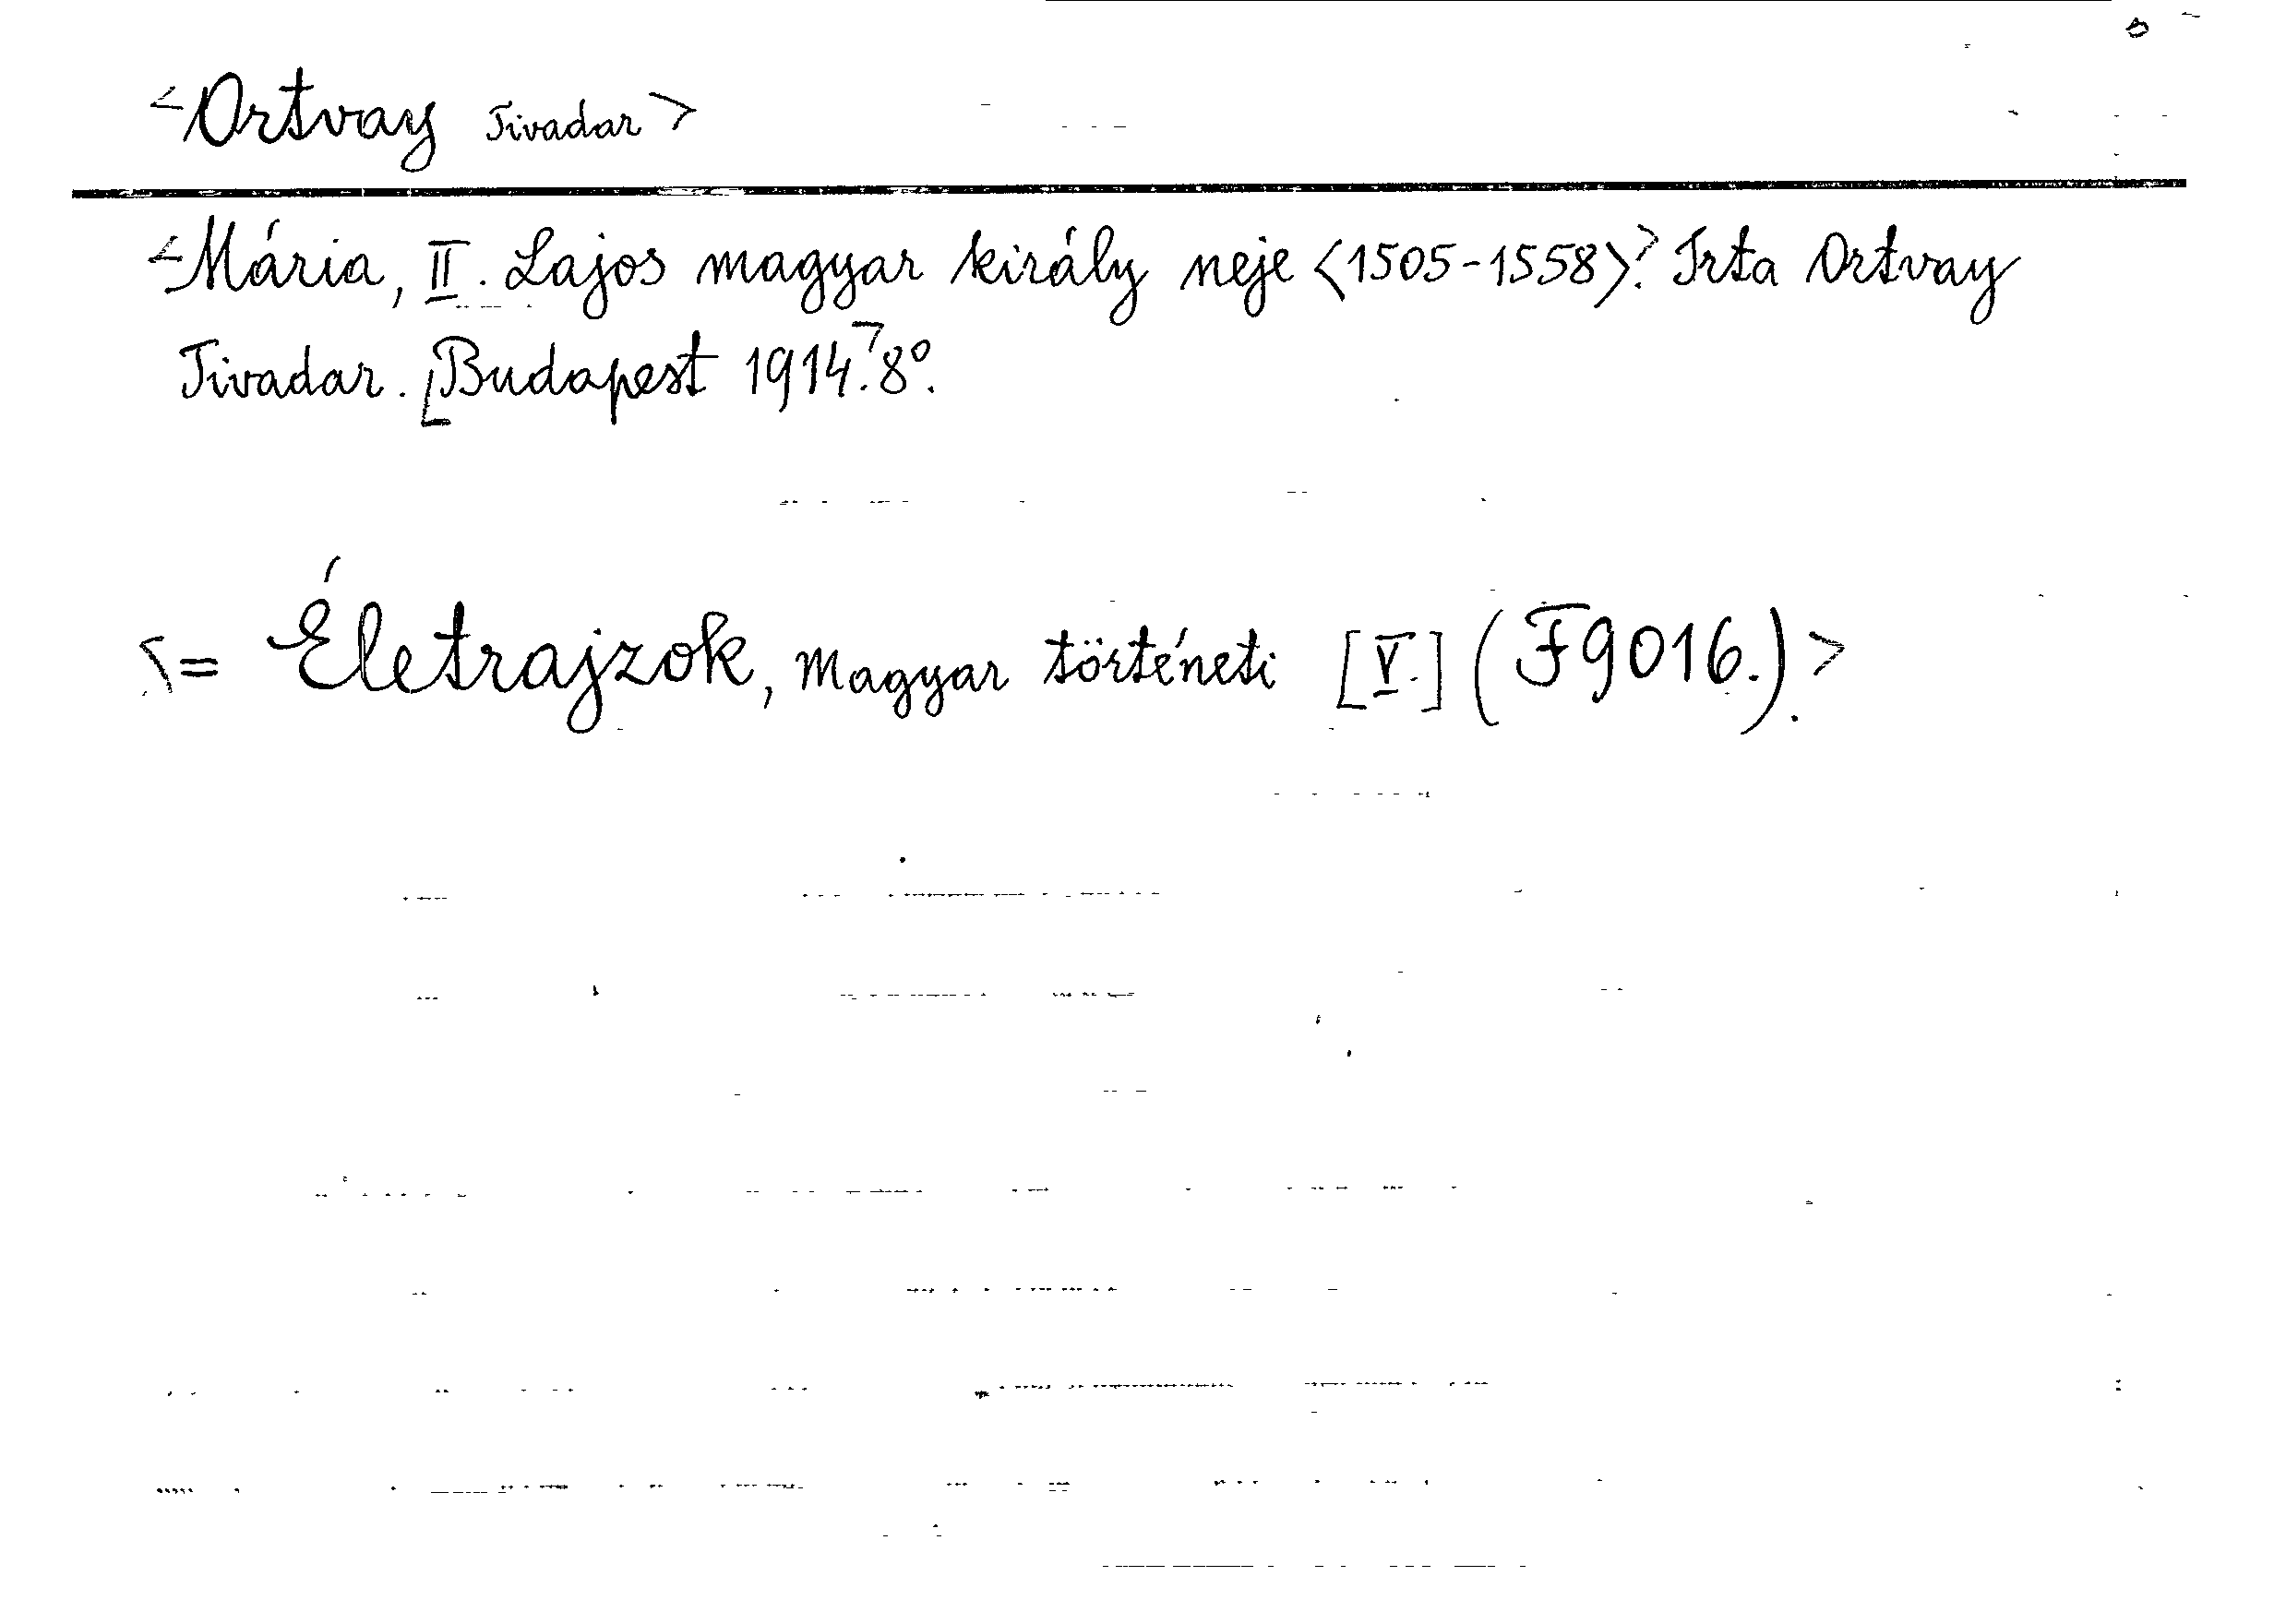 <Ortvay Tivadar>
<Mária, II. Lajos magyar király neje <1505-1558>>. Irta Ortvay
Tivadar. [Budapest 1914.] 8°.
<= Életrajzok, Magyar történeti [V.] (F9016.).>